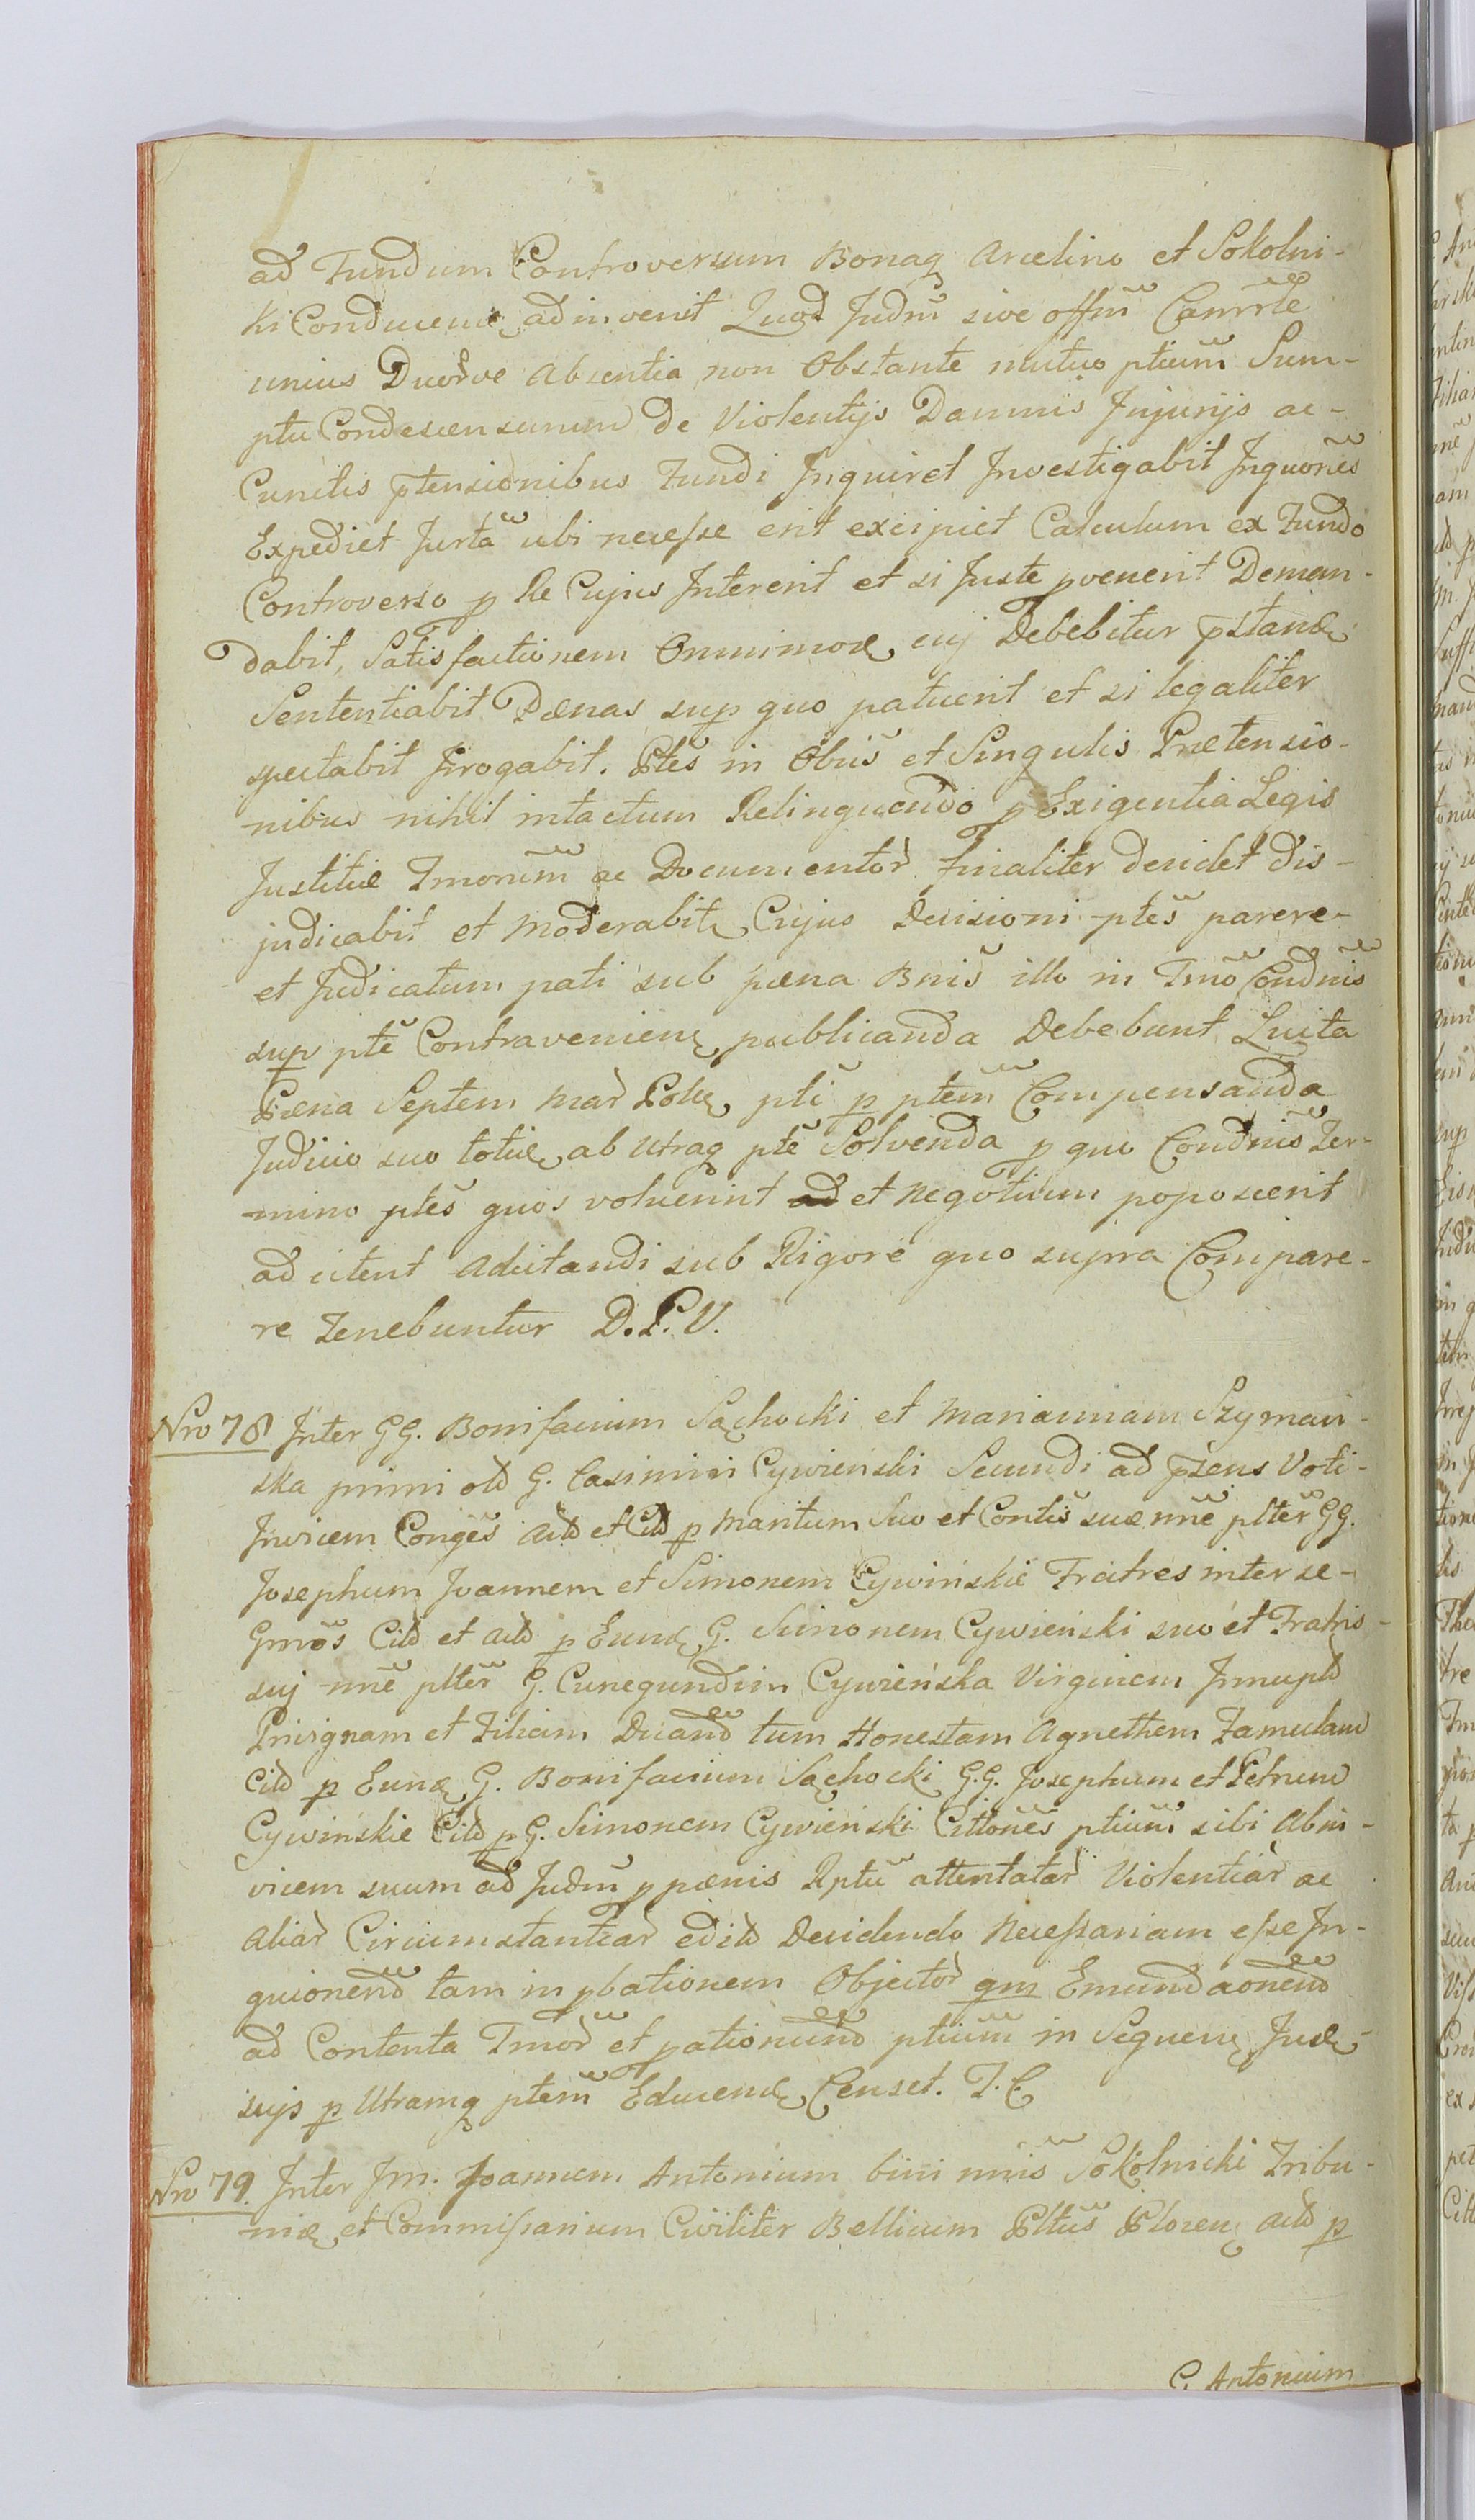 ad Fundum Controversum Bonaq Arcelino et Sokolni-
ki Conducenc adinvenit Quod Judm̃ sive offm̃ Camrrle
unius Duorve Absentia non Obstante mutuo ptium̃ Sum-
ptu Condescensurum de Violentijs Damnis Injurijs ac-
Cunctis ptensionibus Fundi Inquiret Investigabit Inquones̃
Expediet Jurta ubi necesse erit excipiet Calculum ex Fundo
Controverso p Re Cujus Intererit et si Juste pvenerit Deman-
dabit, Satisfactionem Omnimod cuj Debebitur pstand
Sententiabit Pænas sup quo patuerit et si legaliter
spectabit Jrrogabit. Ptes̃ in Obus̃ et Singulis Prætensio-
nibus nihil intactum Relinquendo p Exigentia Legis
Justitiæ Tmorum̃ ac Documentor̃ finaliter decidet dis-
judicabit et Moderabit Cujus Decisioni ptes̃ parere-
et Judicatum pati sub pæna Bnis̃ illo in Tmo Condnis̃
sup pte Contravenienc publicanda Debebunt Luita
Pæna Septem Mar̃ Polic pti p ptem̃ Compensanda
Judicio suo totid ab Utraq pte Solvenda p quo Condnis̃ Ter-
mino ptes̃ quos voluerint ad et Negotium poposcerit
ad citent Adcitandi sub Rigore quo supra Compare-
re Tenebuntur D.P.V.
Nro 78 Inter GG. Bonifacium Sąchocki et Mariannam Szyman-
ska primi old G. Casimiri Cywienski Secundi ad psens Voti-
Invicem Conges̃ Actd et Citd p Maritum Suo et Contis̃ suæ nne plter̃ GG.
Josephum Joannem et Simonem Cywinskie Fratres inter se-
Gmos̃ Citd et Actd p Eund G. Simonem Cywienski suo et Fratris-
suj nne plter̃ G. Cunegundim Cywieńska Virginem Innuptd
Privignam et Filiam Dicand tum Honestam Agnethem Famulam
Citd p Eund G. Bonifacium Sąchocki G.G. Josephum et Petrum
Cywinskie Citd p G. Simonem Cywienski Cittones̃ ptium̃ sibi Abin-
vicem suum ad Judm̃ p pænis Rptu attentatar̃ Violentiar̃ ac
Aliar̃ Circumstantiar̃ editd Decidendo Necessariam esse In-
quionend tam in pbationem Objector̃ qm Emundaonend
ad Contenta Tmor̃ et pationend ptium̃ in Sequenc Jud
sujs p Utramq ptem̃ Educend Censet. T.C
Nro 79. Inter Jm. Joannem Antonium bini nnis̃ Sokolnicki Tribu-
nid et Commissarium Civiliter Bellicum Pltus̃ Plocenc Actd p
C. Antonium